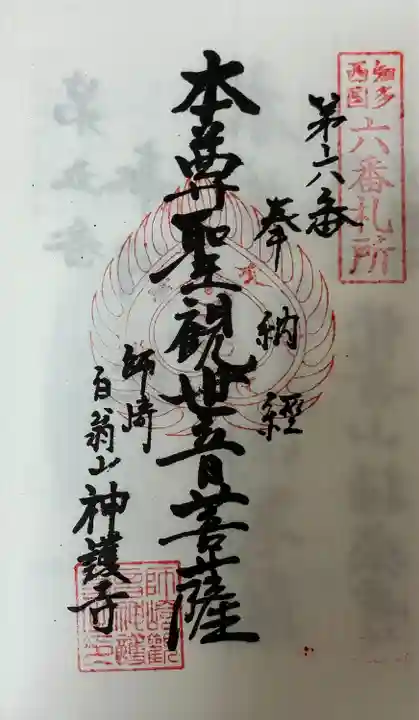 知多
西国
六番札所
第六番
奉納経
本尊聖観世音菩薩
師崎
百翁山神護寺